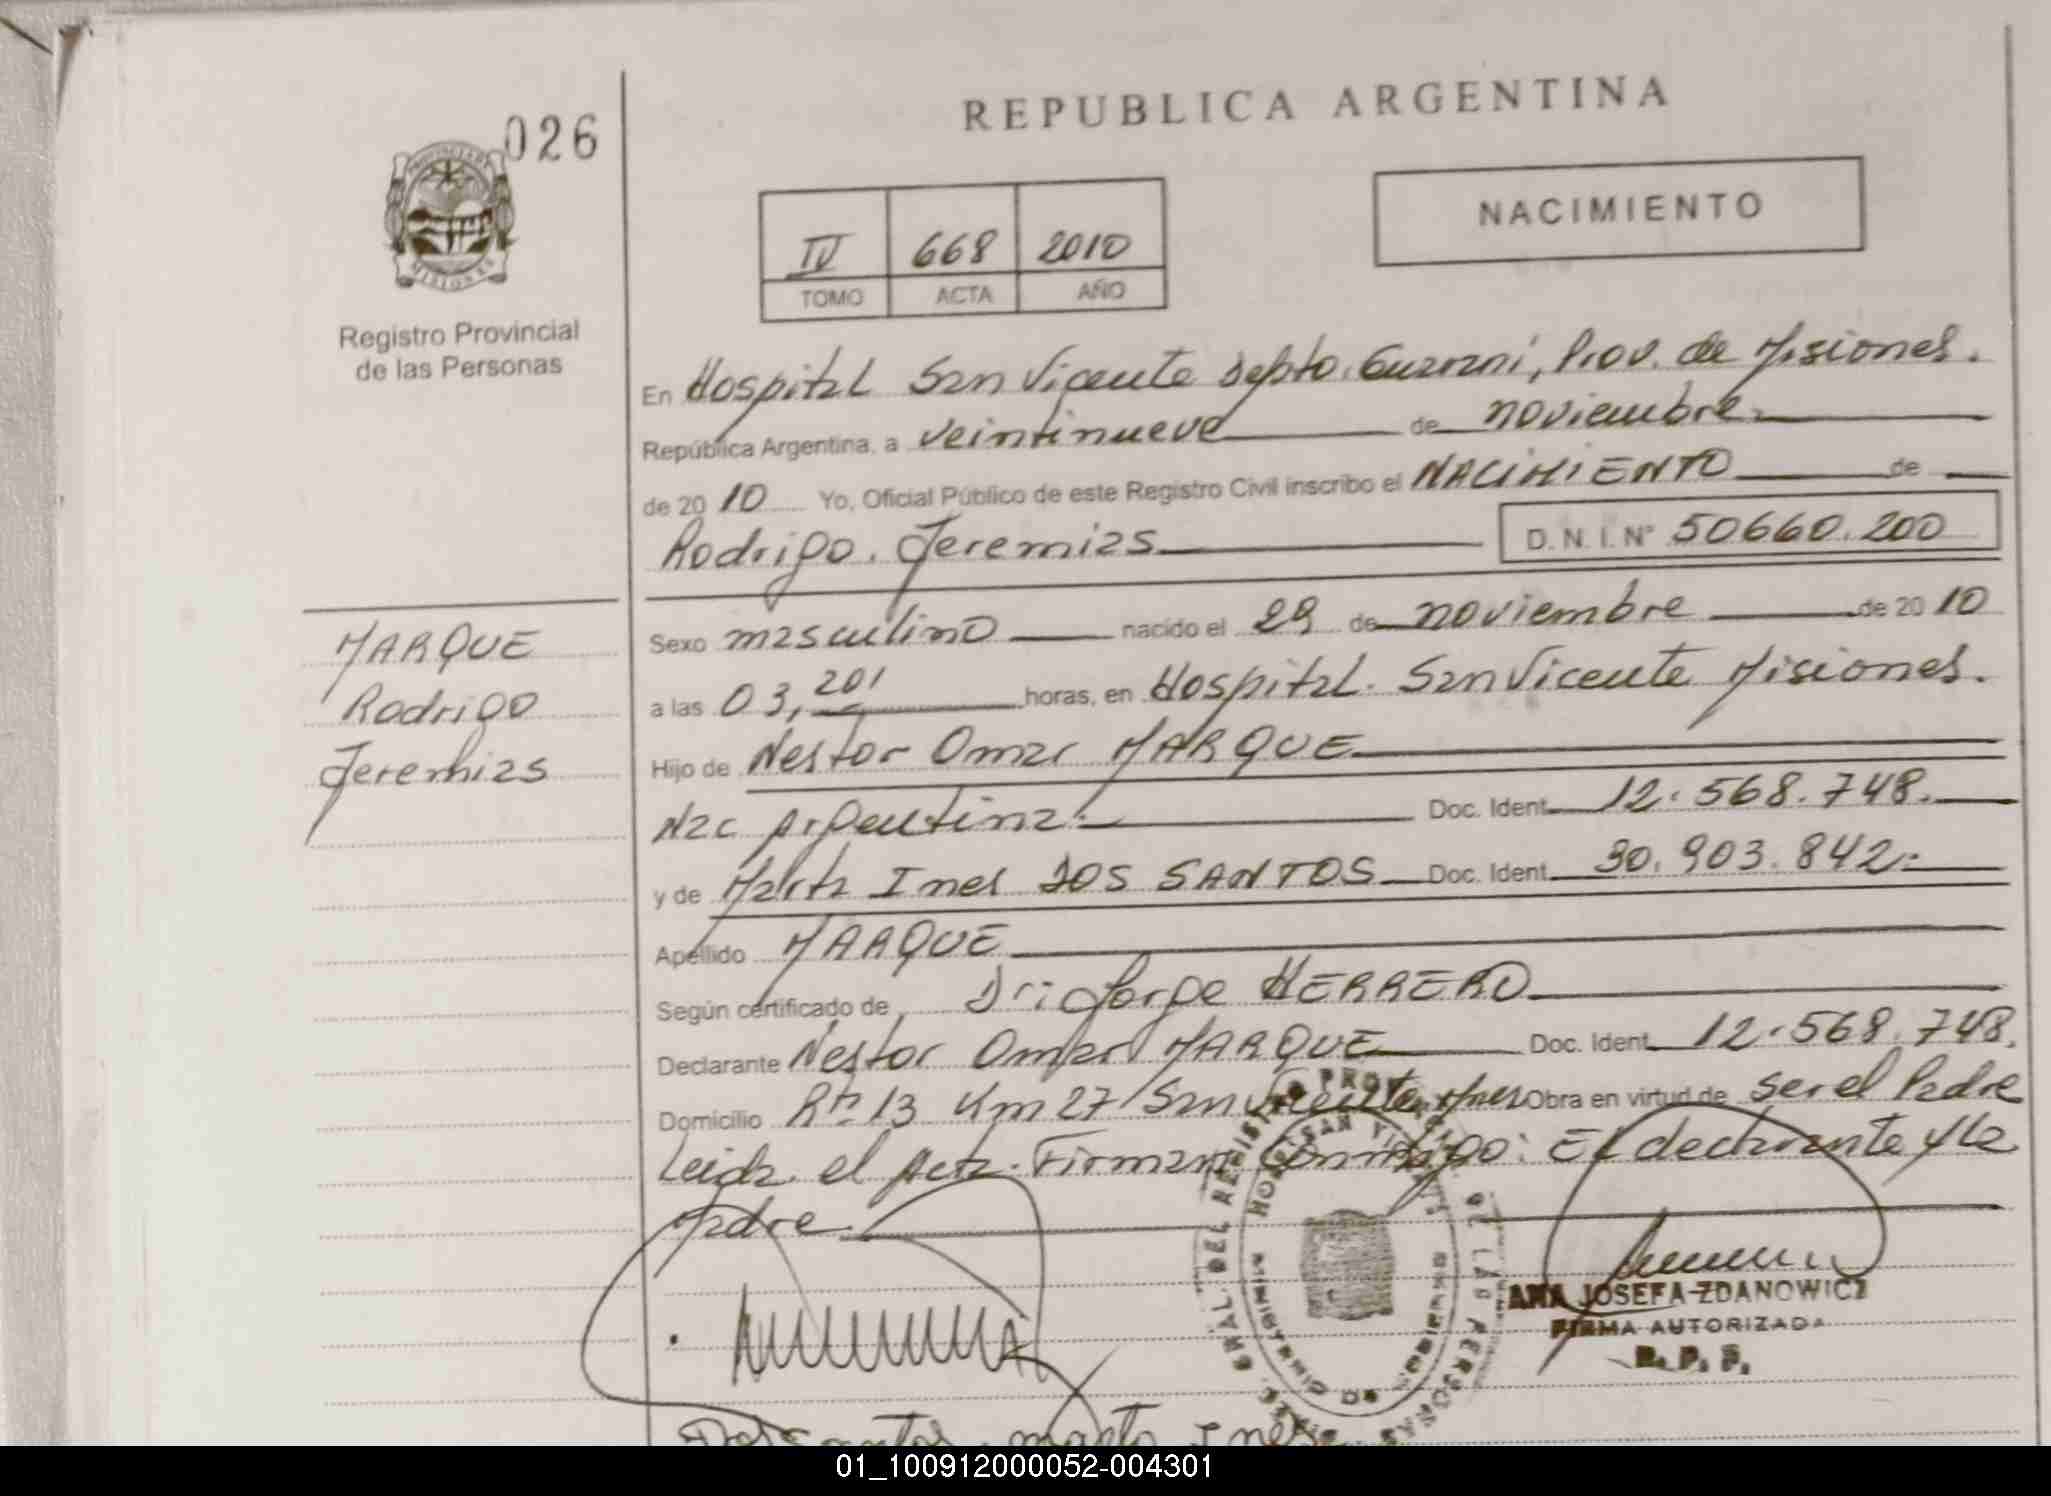 026
REPUBLICA ARGENTINA
NACIMIENTO
IV 668 2010
TOMO ACTA AÑO
PROVINCIA DE
MISIONES
Registro Provincial
de las Personas
En Hospital San Vicente Depto. Guarani, Prov. de Misiones.
República Argentina, a veintinueve de noviembre
de 2010 Yo, Oficial Público de este Registro Civil inscribo el NACIMIENTO de
Rodrigo Jeremias D. N. I. N° 50660.200
Sexo masculino nacido el 29 de noviembre de 2010
a las 03, 201 horas, en Hospital San Vicente Misiones.
Hijo de Nestor Omar MARQUE
Nac Argentina Doc. Ident. 12.568.748.
y de Marta Ines DOS SANTOS Doc. Ident. 30.903.842.
Apellido MARQUE
Según certificado de Dr: Jorge HERRERO
Declarante Nestor Omar MARQUE Doc. Ident. 12.568.748.
Domicilio Rta 13 Km 27 San Vicente Mnes Obra en virtud de ser el Padre
Leida el Acta. Firman Conmigo: El declarante y la
Madre
MARQUE
Rodrigo
Jeremias
ANA JOSEFA ZDANOWICZ
FIRMA AUTORIZADA
R. P. P.
GRAL. DEL REGISTRO PROV. DE LAS PERSONAS
HOSP. SAN VICENTE
MISIONES
Dos santos marta Ines
01_100912000052-004301